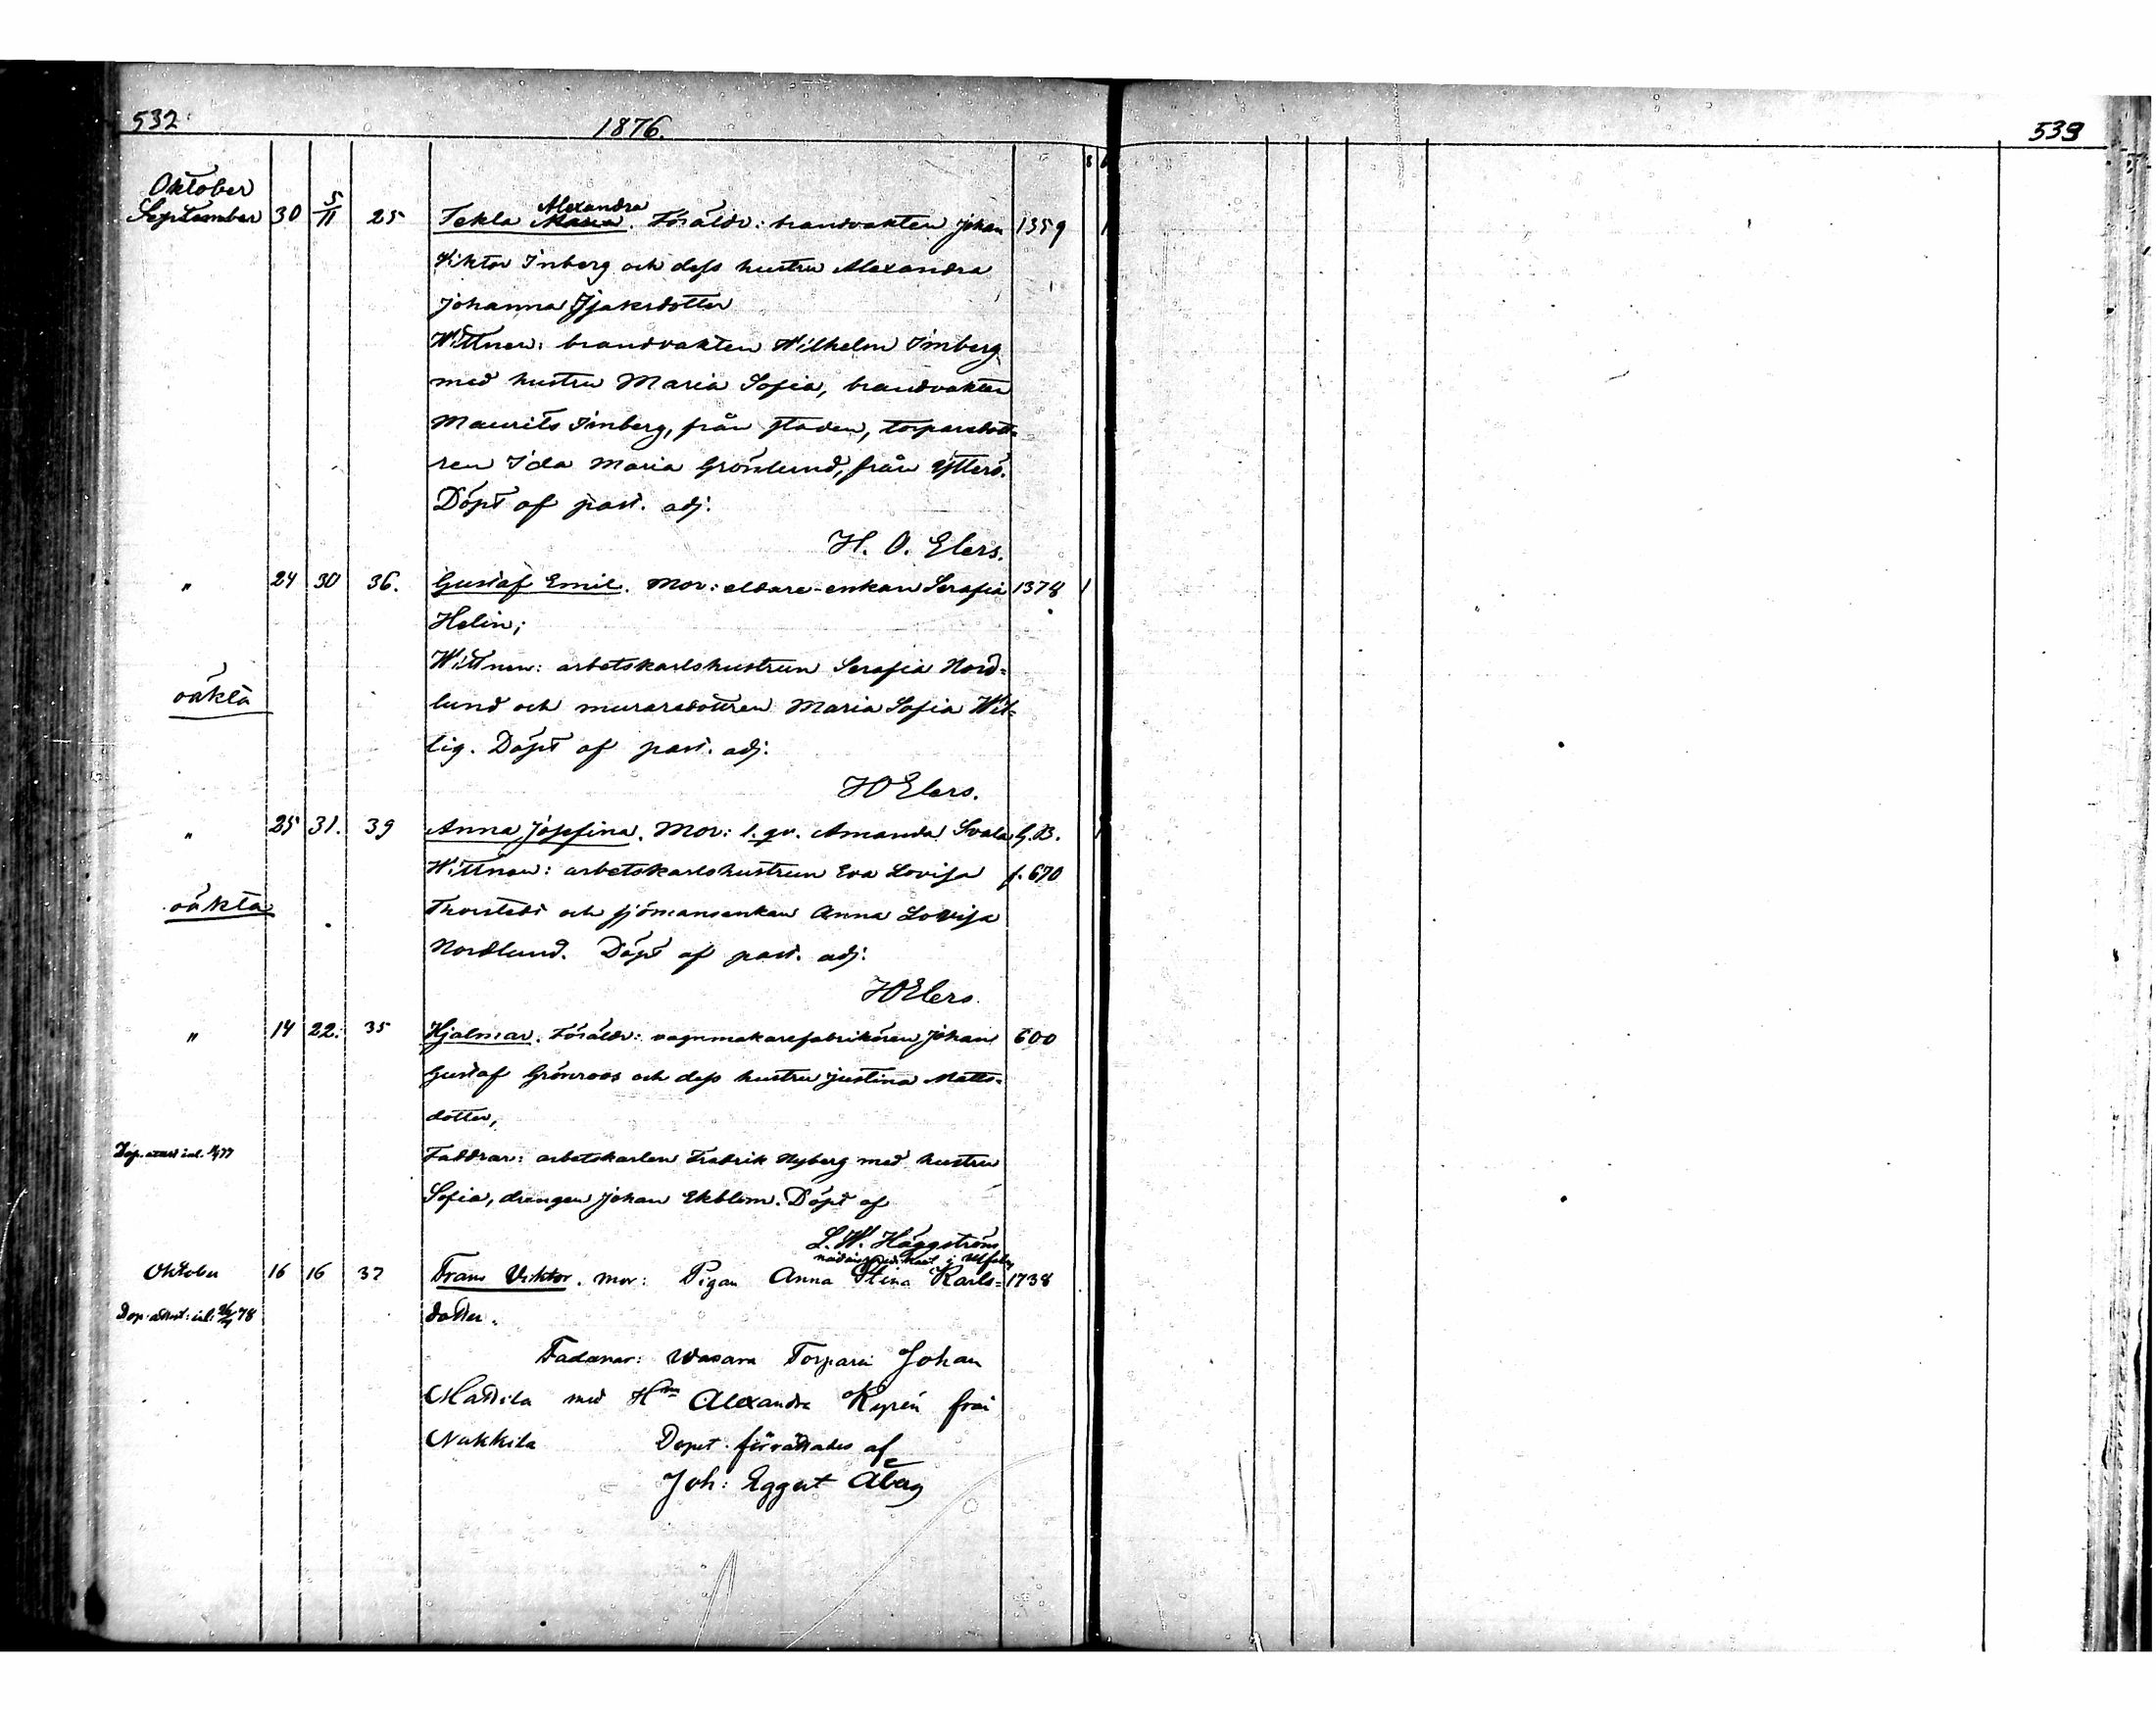 532
1876.
533
Oktober
September 30 5/11 25 Tekla Alexandra Maria. Föräldr: brandvakten Johan 1359
Viktor Inberg och dess hustru Alexandra
Johanna Isaksdotter
Wittnen: brandvakten Wilhelm Imberg
med hustru Maria Sofia, brandvakten
Maurits Imberg, från staden, torparedott=
ren Ida Maria Grönlund, från Ytterö.
Döpt af past. adj.
H. O. Elers.
" 24 30 36. Gustaf Emil. Mor: eldare-enkan Serafia 1378 1
Helin;
Wittnen: arbetskarlshustrun Serafia Nord=
oäkta
lund och muraredottren Maria Sofia Wit=
lig. Döpt af past. adj.
HOElers.
" 25 31. 39 Anna Josefina. Mor: l. qv. Amanda Svala G.B.
Wittnen: arbetskarlshustrun Eva Lovisa f. 670
oäkta
Thorstedt och sjömansenkan Anna Lovisa
Nordlund. Döpt af past. adj.
HOElers.
" 14 22. 35 Hjalmar. Föräldr: vagnmakarefabrikören Johan 600
Gustaf Grönroos och dess hustru Justina Matts=
dotter,
Dop. attest inl.
Faddrar: arbetskarlen Fredrik Nyberg med hustru
Sofia, drengen Johan Ekblom. Döpt af
L. W. Häggström
i Ulfsby
Oktober 16 16 37 Frans Viktor. Mor: Pigan Anna Stina Karls= 1738
Dop. attest: inl: 78
dotter.
Faddrar: Torparen Johan
Mattila med Hru Alexandra Kyrén från
Nakkila Dopet förrättades af
Joh: Eggert Åberg